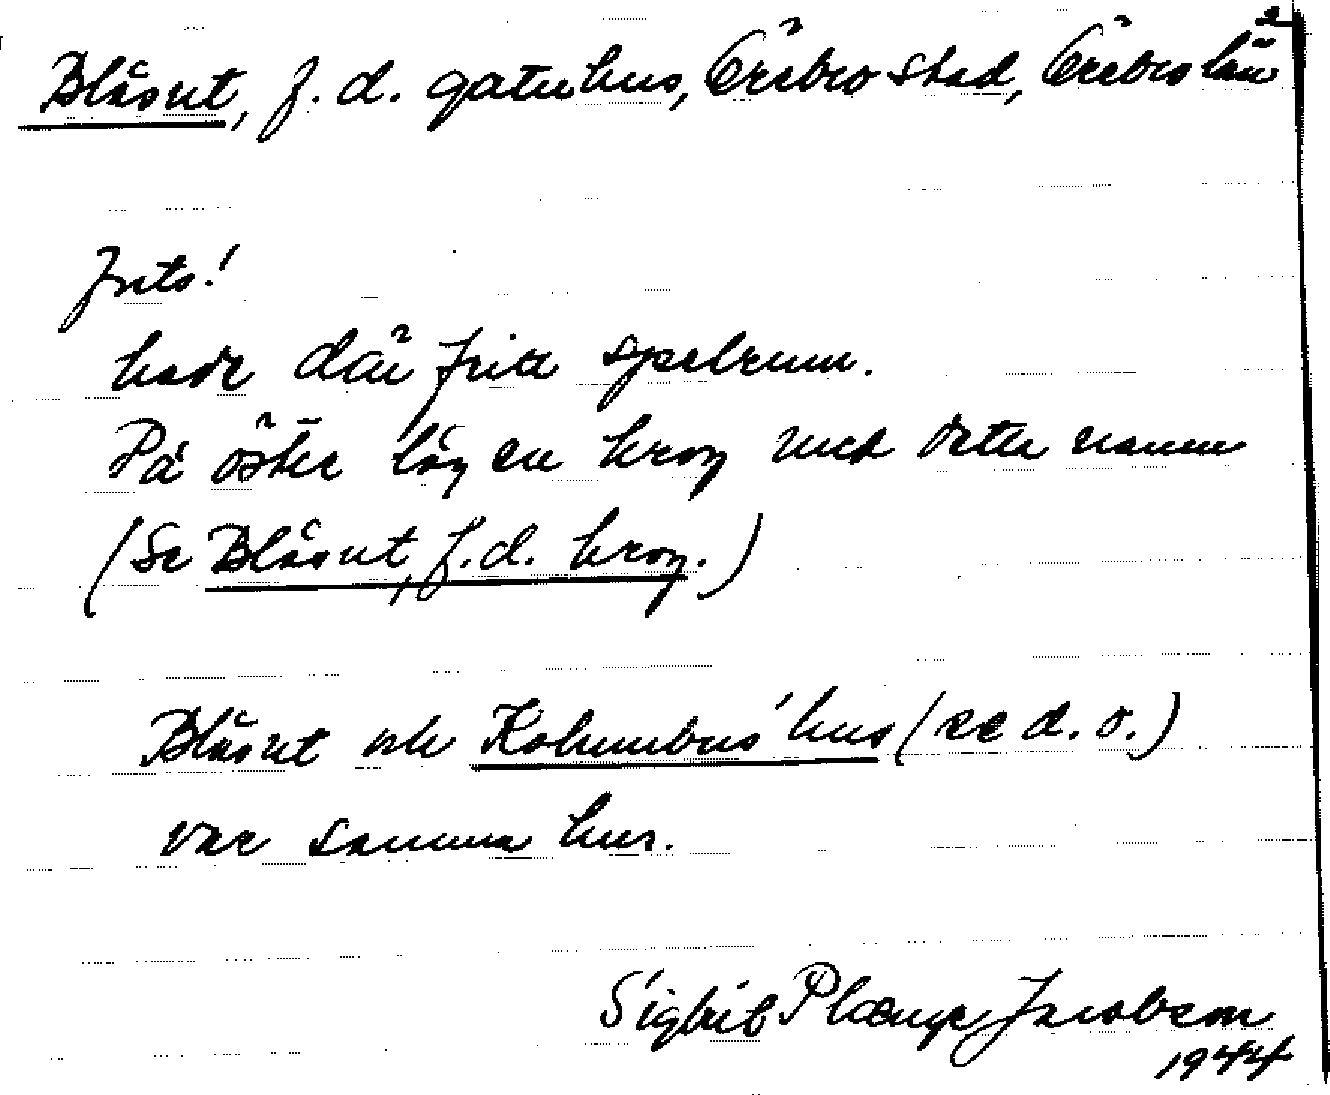 2
Blåsut, f. d. gatuhus, Örebro stad, Örebro län
Forts!
hade där fritt spelrum.
På öster låg en krog med detta namn
(Se Blåsut, f. d. krog.)
Blåsut och Kolumbus' hus (se d. o.)
var samma hus.
Sigbrit Plænge Jacobson
1944